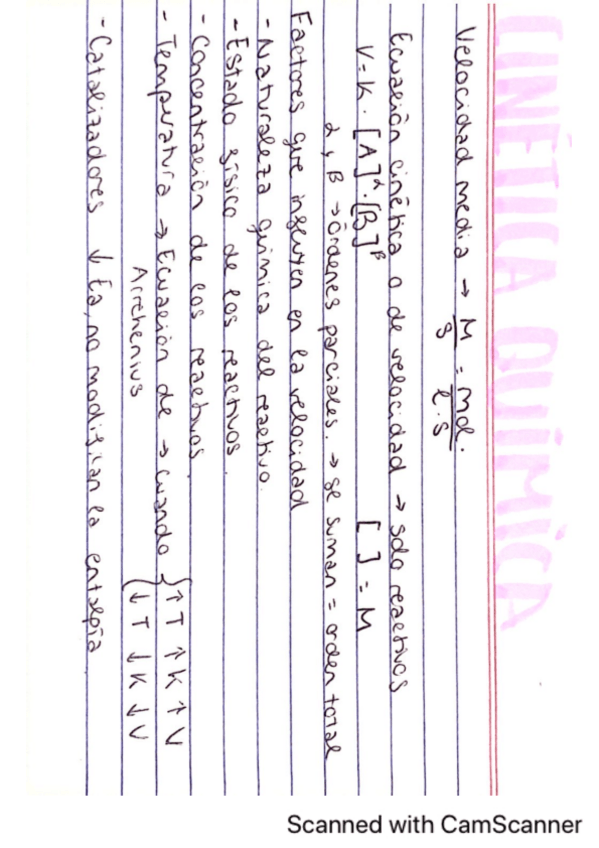 CINÉTICA QUÍMICA
Velocidad media → M/s = mol/l·s
Ecuación cinética o de velocidad → solo reactivos
V = K · [A]^α · [B]^β [ ] = M
α, β → órdenes parciales. → se suman = orden total
Factores que influyen en la velocidad
- Naturaleza química del reactivo.
- Estado físico de los reactivos
- Concentración de los reactivos
- Temperatura → Ecuación de → cuando { ↑T ↑K ↑V
Arrhenius { ↓T ↓K ↓V
- Catalizadores ↓ Ea, no modifican la entalpía
Scanned with CamScanner